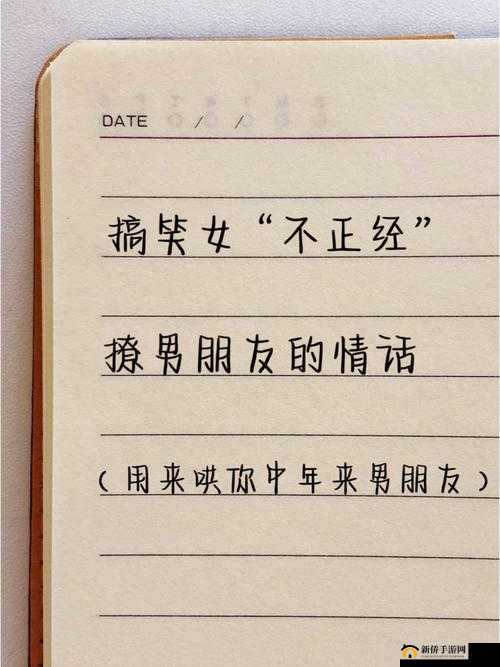 DATE / /
搞笑女“不正经”
撩男朋友的情话
(用来哄你中年来男朋友)
新侨手游网